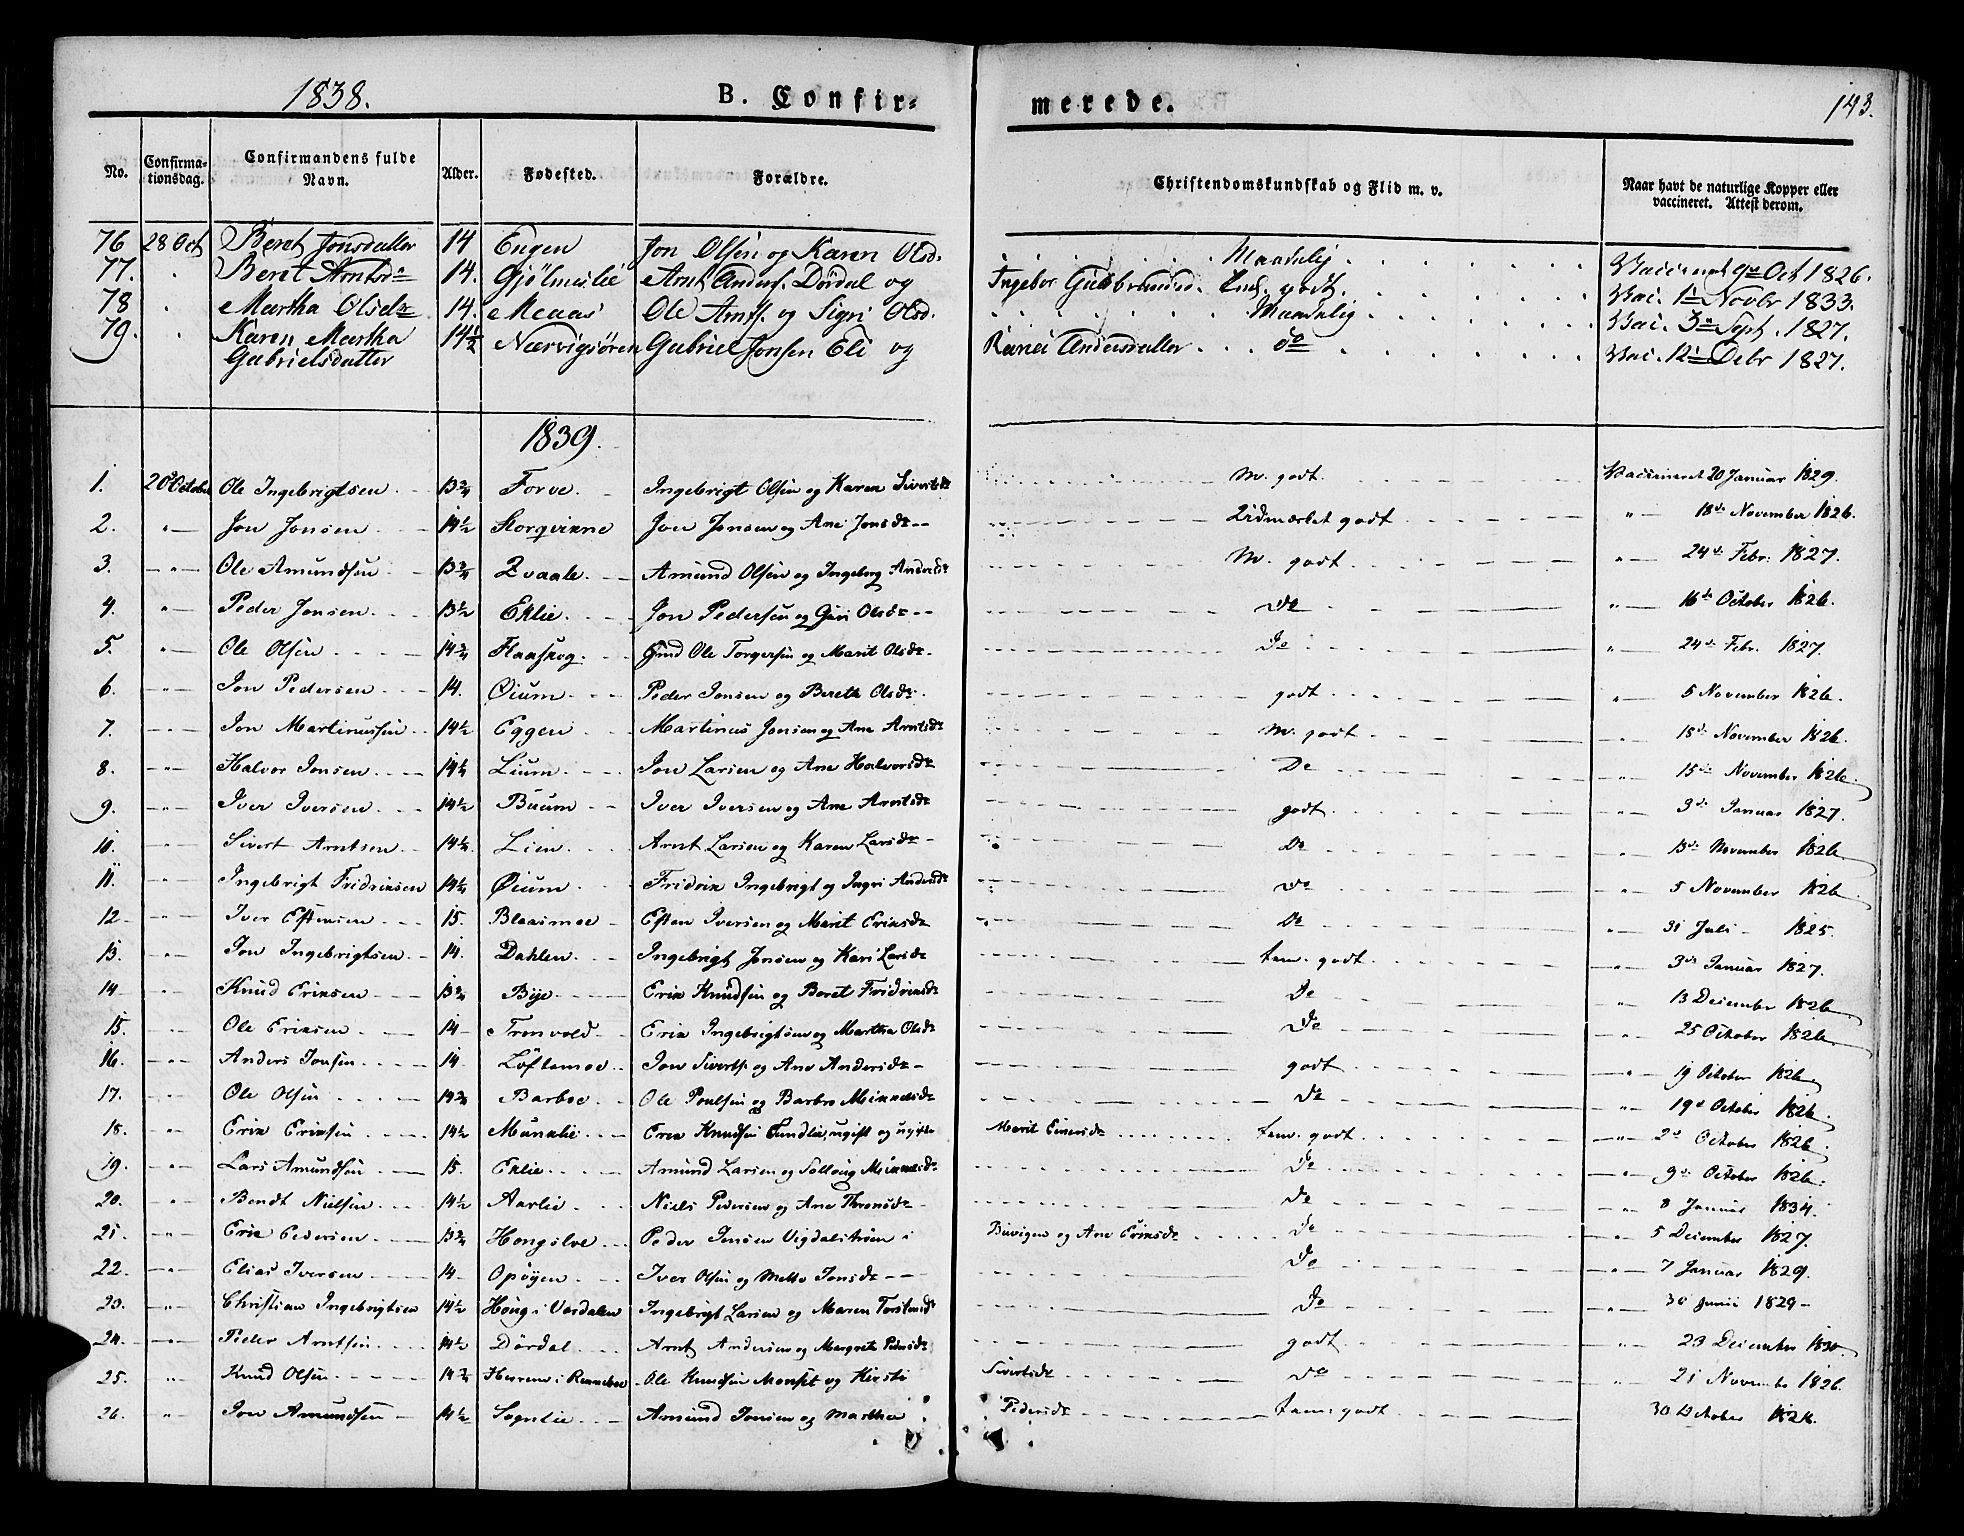 1838.
B. Confir-
merede.
143.
No. Confirma-tionsdag. Confirmandens fulde Navn. Alder. Fødested. Forældre. Christendomskundskab og Flid m. v. Naar havt de naturlige Kopper eller vaccineret. Attest derom.
76 28 Oct Beret Jonsdatter 14 Engen Jon Olsen og Karen Olsd. Maadelig Vaccineret 9de Oct 1826.
77. " Beret Arntsd 14. Gjølmeslie Arnt Anders. Dørdal og Ingebor Gudbrandsd. godt. Vac. 1 Novbr 1833.
78 " Martha Olsd 14. Meaas Ole Arnts. og Sigri Olsd. Maadelig Vac. 3 Sept. 1827.
79. " Karen Martha 14½ Nærvigsøren Gabriel Jonsen Eli og Ranei Andersdatter do Vac. 12 Debr 1827.
Gabrielsdatter
1839.
1. 20 October Ole Ingebrigtsen 13¾ Forve Ingebrigt Olsen og Karen Sivertsd M. godt. Vaccineret 20 Januar 1829.
2. " Jon Jonsen 14½ Storqvinne Jon Jonsen og Ane Jonsd godt " 18de November 1826.
3. " Ole Amundsen 13¾ Amund Olsen og Ingeborg Andersd M. godt " 24de Febr. 1827.
4. " Peder Jonsen 13½ Eklie Jon Pedersen og Guri Olsd do " 16de October 1826.
5. " Ole Olsen 14¾ Flaaskog Ole Torgersen og Marit Olsd do " 24de Febr. 1827.
6. " Jon Pedersen 14. Øium Peder Jonsen og Bereth Olsd godt " 5 November 1826.
7. " Jon Martinussen 14½ Eggen Martinus Jonsen og Ane Arntsd M. godt " 18de November 1826.
8. " Halvor Jonsen 14¼ Lium Jon Larsen og Ane Halvorsd Do " 15de November 1826.
9. " Iver Iversen 14½ Buum Iver Iversen og Ane Arntsd godt " 3de Januar 1827.
10. " Sivert Arntsen 14¼ Lien Arnt Larsen og Karen Larsd Do " 13de November 1826
11. " Ingebrigt Fridriksen 14¼ Øium Fridrik Ingebrigt og Ingri Andersd do " 5 November 1826
12 " Iver Estensen 15. Blaasmoe Esten Iversen og Marit Eriksd Do " 31 Juli 1825.
13. " Jon Ingebrigtsen 14. Dahlen Ingebrigt Jonsen og Kari Larsd tem. godt " 3de Januar 1827.
14 " Knud Eriksen 13¾ Bye Erik Knudsen og Beret Fridriksd Do " 13 December 1826
15. " Ole Eriksen 14 Tronvold Erik Ingebrigtsen og Martha Olsd Do " 25 October 1826
16. " Anders Jonsen 14. Løftemoe Jon Siverts. og Ane Andersd godt " 19 October 1826
17. " Ole Olsen 14¾ Barboe Ole Poulsen og Barbro Mekkelsd Do " 19d October 1826.
18. " Erik Eriksen 14½ Munklie Erik Knudsen ugift og ugift Marit Einersd tem. godt " 2d October 1826
19. " Lars Amundsen 15. Eklie Amund Larsen og Sollaug Mekkelsd Do " 9de October 1826.
20. " Bendt Nielsen 14½ Aarlie Niels Pedersen og Ane Thronsd do " 8 Januar 1834.
21. " Erik Pedersen 13¾ Hongsloe Peder Jensen Vigdalstrøen i Buvigen og Ane Eriksd do " 5 December 1827.
22. " Elias Iversen 14 Opøyen Iver Olsen og Mette Jonsd do " 7 Januar 1829.
23. " Christian Ingebrigtsen 14½ Houg i Værdalen Ingebrigt Larsen og Maren Torstensd Do " 30 Junii 1829
24. " Peder Arntsen 14½ Dørdal Arnt Andersen og Margrete Pedersd godt " 23 December 1830
25. " Knud Olsen 14¾ i Renneboe Ole Knudsen og Kirsti Sivertsd do " 21 November 1826.
26. " Jon Amundsen 14½ Sognlie Amund Jonsen og Martha Pedersd tem. godt " 30 October 1826.